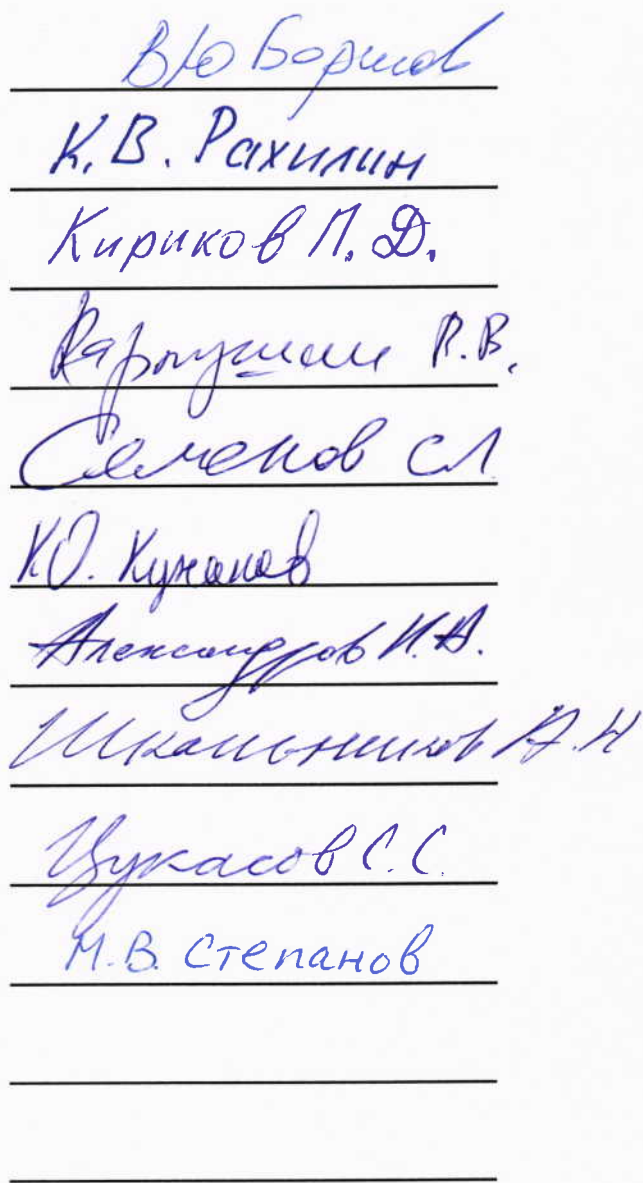 В Ю Борисов
К. В. Рахилин
Кириков П. Д.
В.
Семенов СЛ
К.О.
Александров И. А.
Школьников А. Н
Цукасов С. С.
М. В. Степанов